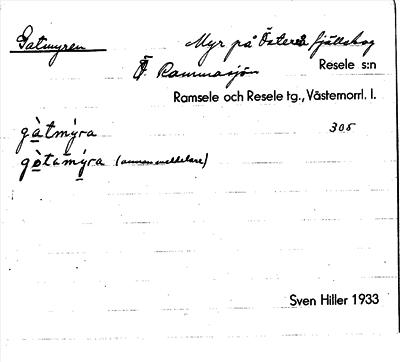 Gatmyren Myr på Österå fjällskog
Ö. Rammasjön Resele s:n
Ramsele och Resele tg., Västernorrl. l.
gàtmýra 305
gòtamýra (annan meddelare)
Sven Hiller 1933